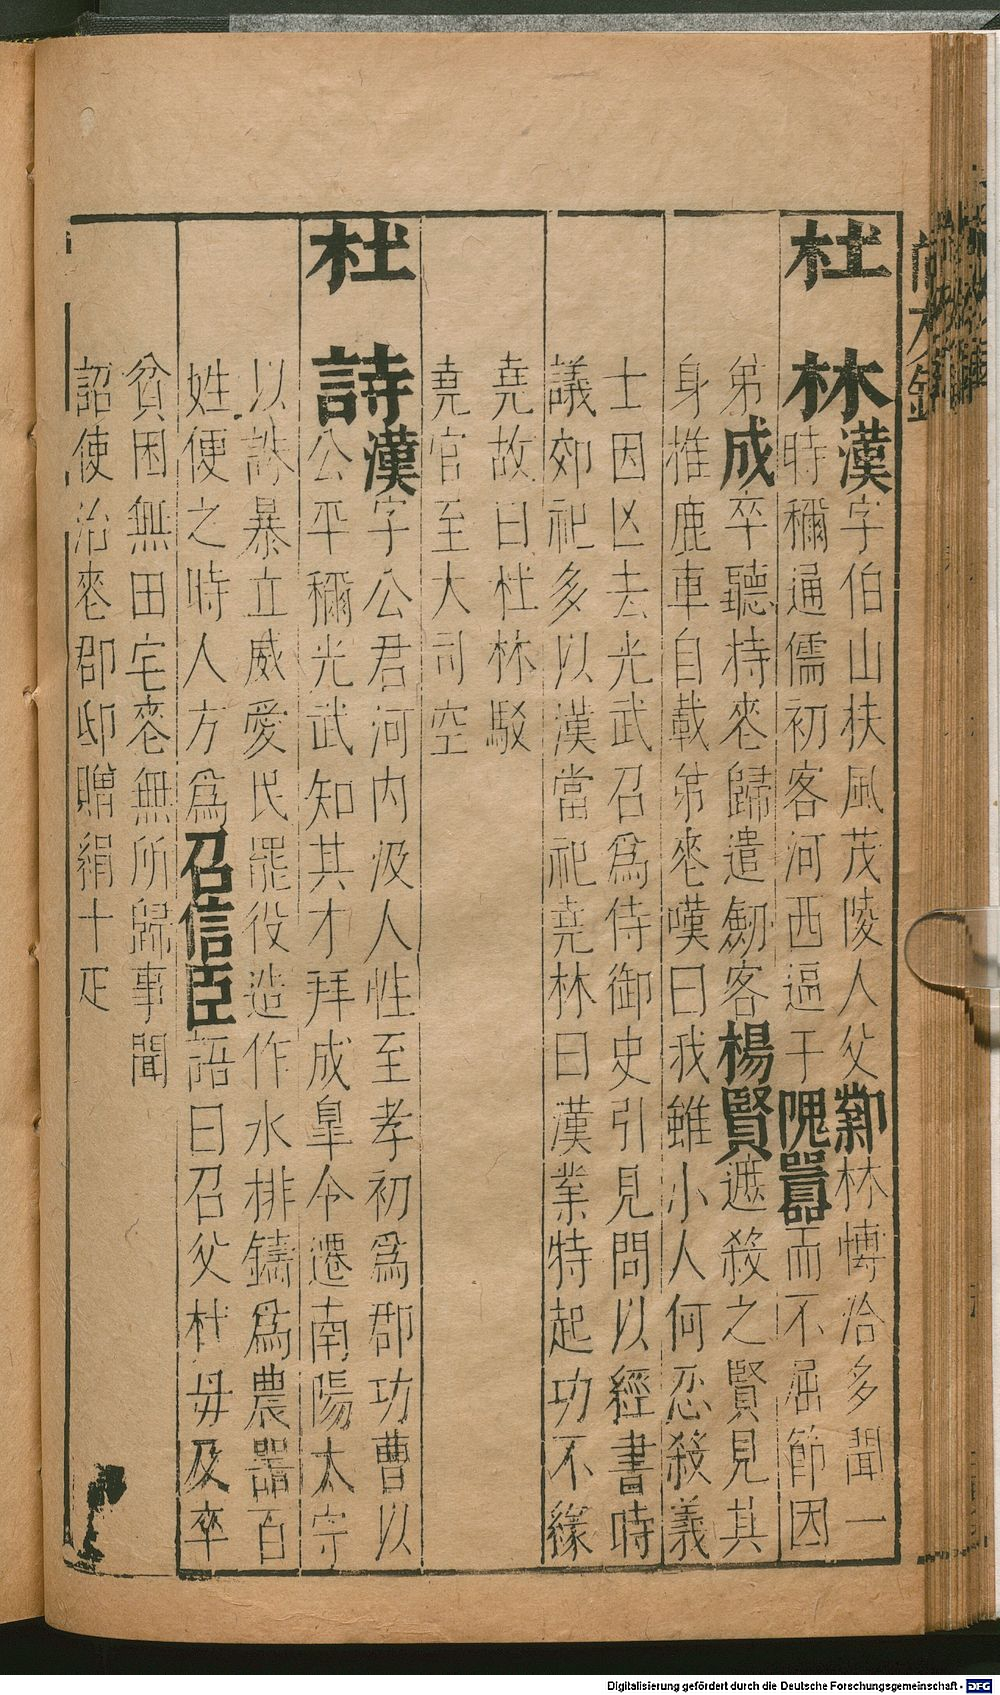 杜林漢字伯山扶風茂陵人父鄴林博洽多聞一
時穪通儒初客河西逼于隗囂而不屈節因
弟成卒聽持䘮歸遣劒客楊賢遮殺之賢見其
身推鹿車自載弟䘮嘆曰我雖小人何忍殺義
士因亾去光武召爲侍御史引見問以經書時
議郊祀多以漢當祀堯林曰漢業特起功不緣
堯故曰杜林駁
堯官至大司空
杜詩漢字公君河内汲人性至孝初爲郡功曹以
公平穪光武知其才拜成臯令遷南陽太守
以誅暴立威愛民罷役造作水排鑄爲農器百
姓便之時人方爲召信臣語曰召父杜毋及卒
貧困無田宅䘮無所歸事聞
詔使治䘮郡邸贈絹十疋
Digitalisierung gefördert durch die Deutsche Forschungsgemeinschaft - DFG